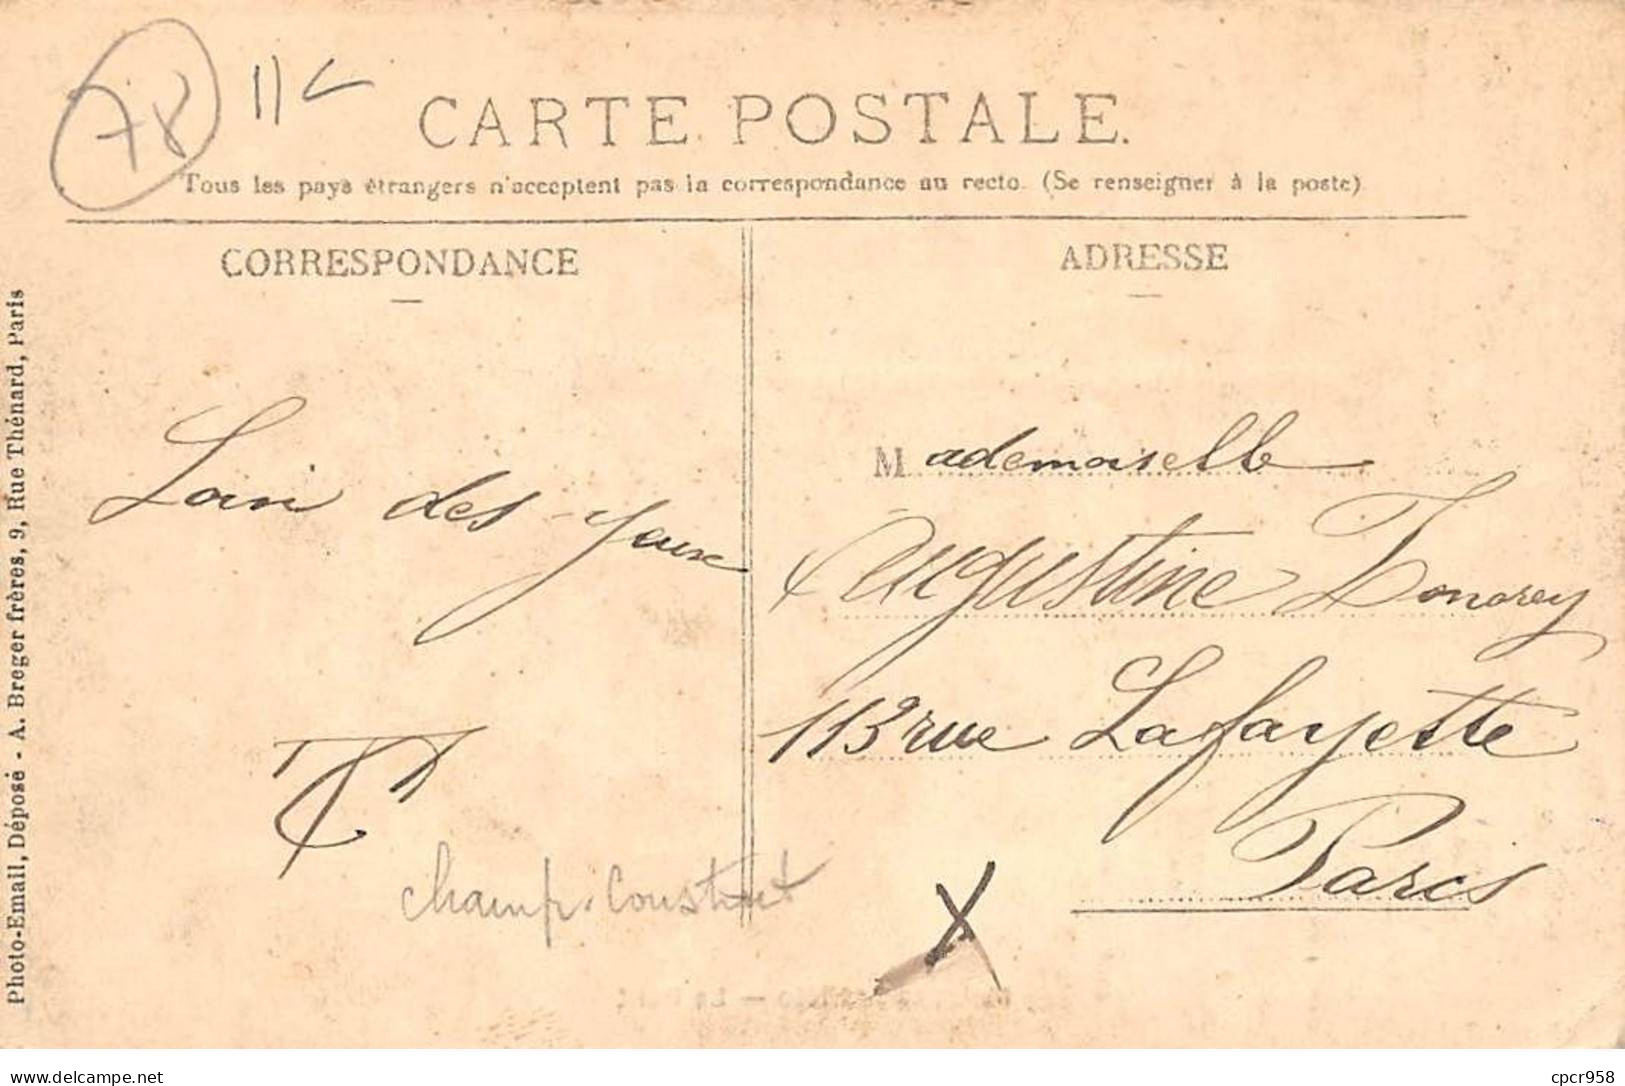 78
CARTE POSTALE.
Tous les pays étrangers n'acceptent pas la correspondance au recto. (Se renseigner à la poste)
CORRESPONDANCE
ADRESSE
Photo-Email, Déposé - A. Breger frères, 9, Rue Thénard, Paris
Loin des yeux
Mademoiselle
Augustine
113 rue Lafayette
Paris
champ.
cpcr958